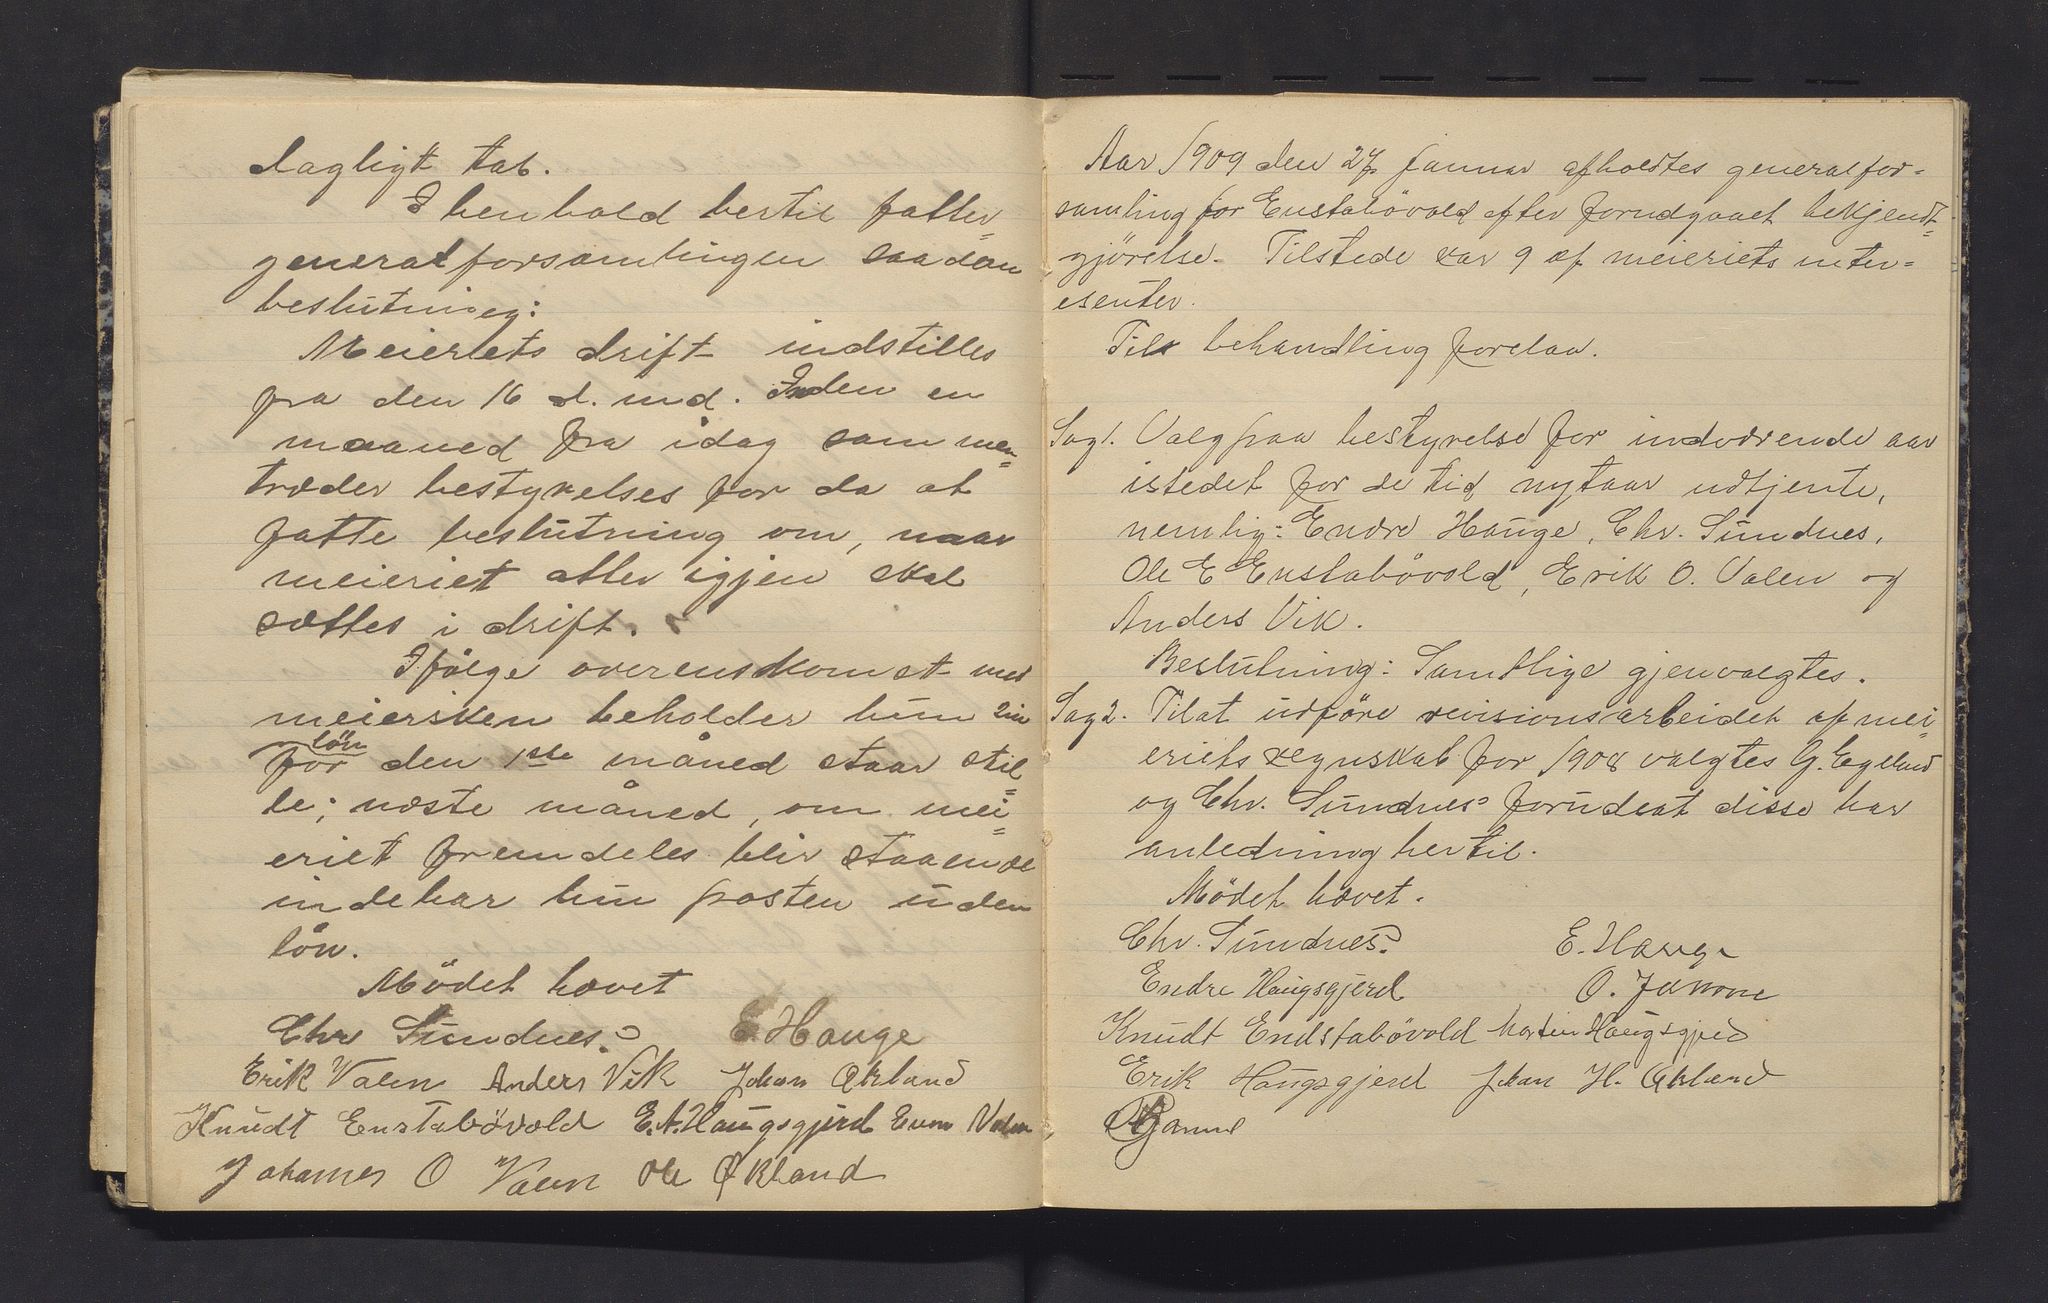 dagligt tab.
I henhold hertil fatter
generalforsamlingen saadan
beslutning:
Meieriets drift indstilles
fra den 16 d. md. Inden en
maaned fra idag sammen=
træder bestyrelses for da at
fatte beslutning om, naar
meieriet atter igjen skal
sættes i drift.
Ifølge overenskomst med
meiersken beholder hun sin
løn
for den 1ste måned staar stil
le; næste måned, om mei=
eriet fremdeles blir staaende
indehar hun posten uden
løn.
Mödet hævet
Chr Sundnes. E. Hauge
Erik Valen Anders Vik Johan Økland
Knudt Enstabövold E. A. Haugsgjerd Even Valen
Johannes O Valen Ole Økland
Aar 1909 den 27 januar afholdtes generalfor=
samling for Enstabövold efter forudgaaet bekjendt=
gjörelse. Tilstede var 9 af meieriets inter=
esenter.
Til behandling forelaa.
Sag 1. Valg paa bestyrelse for indværende aar
istedet for de tid nytaar udtjente,
nemlig: Endre Hauge, Chr. Sundnes,
Ole E Enstabövold, Erik O. Valen og
Anders Vik.
Beslutning: Samtlige gjenvalgtes.
Sag 2. Til at udföre revisionsarbeidet af mei=
eriets regnskab for 1908 valgtes G. Egeland
og Chr. Sundnes forudsat disse har
anledning hertil.
Mödet hævet.
Chr. Sundnes. E. Hauge
Endre Haugsgjerd O.
Knudt Endstabövold Martin Haugsgjerd
Erik Haugsgjerd Johan H. Økland